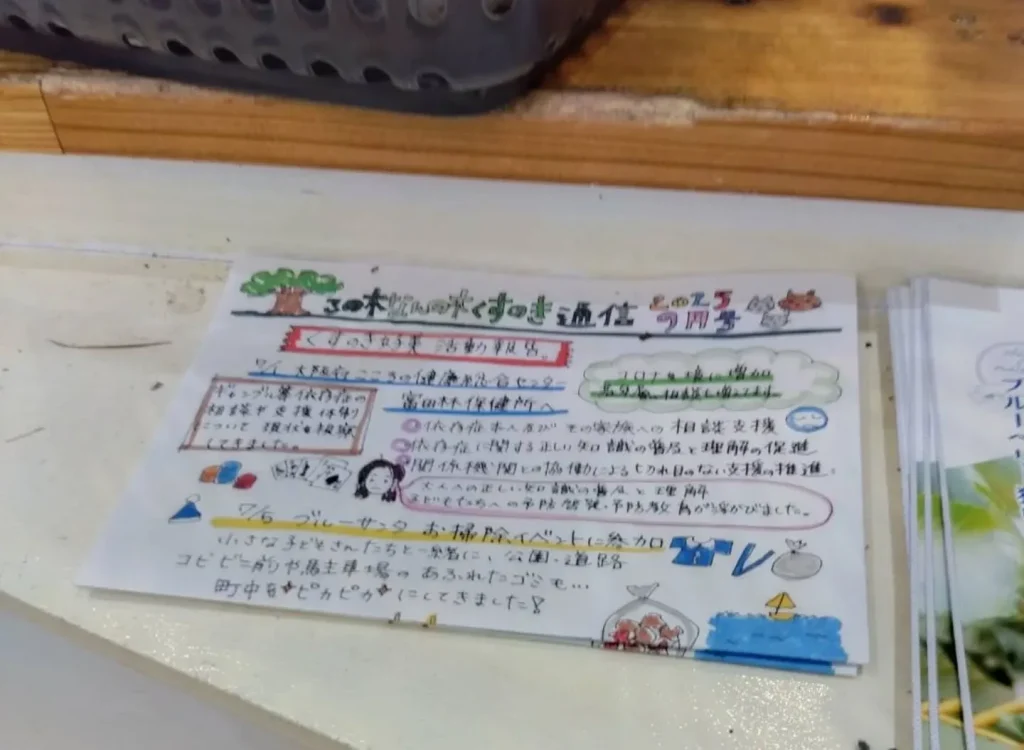 くすのき通信 2025
9月号
活動報告。
大阪府こころの健康総合センター
富田林保健所へ
ギャンブル等依存症の
相談や支援体制
について 現状を視察
してきました。
コロナを境に増加
依存症本人及び その家族への相談支援
依存症に関する正しい知識の普及と理解の促進
関係機関との協働による切れ目のない支援の推進
大人への正しい知識の普及と理解
子どもたちへの予防啓発・予防教育が浮かびました。
ブルーサンタ お掃除イベントに参加
小さな子どもさんたちと一緒に、公園・道路
コンビニ前や駐車場の あふれたゴミも...
町中をピカピカにしてきました!
ブルー